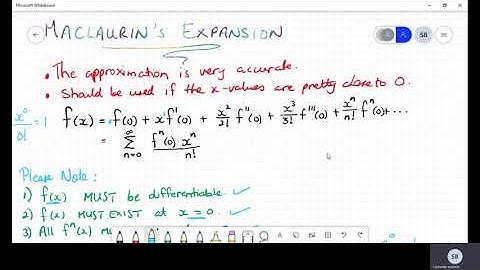 Microsoft Whiteboard
MACLAURIN'S EXPANSION
SB
• The approximation is very accurate.
• Should be used if the x-values are pretty close to 0.
x⁰/0! = 1
f(x) = f(0) + x f'(0) + x²/2! f''(0) + x³/3! f'''(0) + xⁿ/n! fⁿ(0) + ...
= ∞ Σ n=0 fⁿ(0) xⁿ / n!
Please Note:
1) f(x) MUST be differentiable. ✓
2) f(x) MUST EXIST at x = 0. ✓
3) All fⁿ(x)
SB